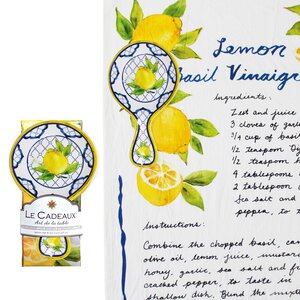 LE CADEAUX
Art de la table
Lemon
Basil Vinaigr
Ingredients:
Zest and juice
3 cloves of garl
3/4 cup of basil
1/2 teaspoon Dij
1/2 teaspoon
4 tablespoons
2 tablespoon
Sea salt and
pepper, to
Instructions:
Combine the chopped basil,
olive oil, lemon juice, mustard
honey, garlic, sea salt and f
cracked pepper, to taste in
shallow dish. Blend the mixt